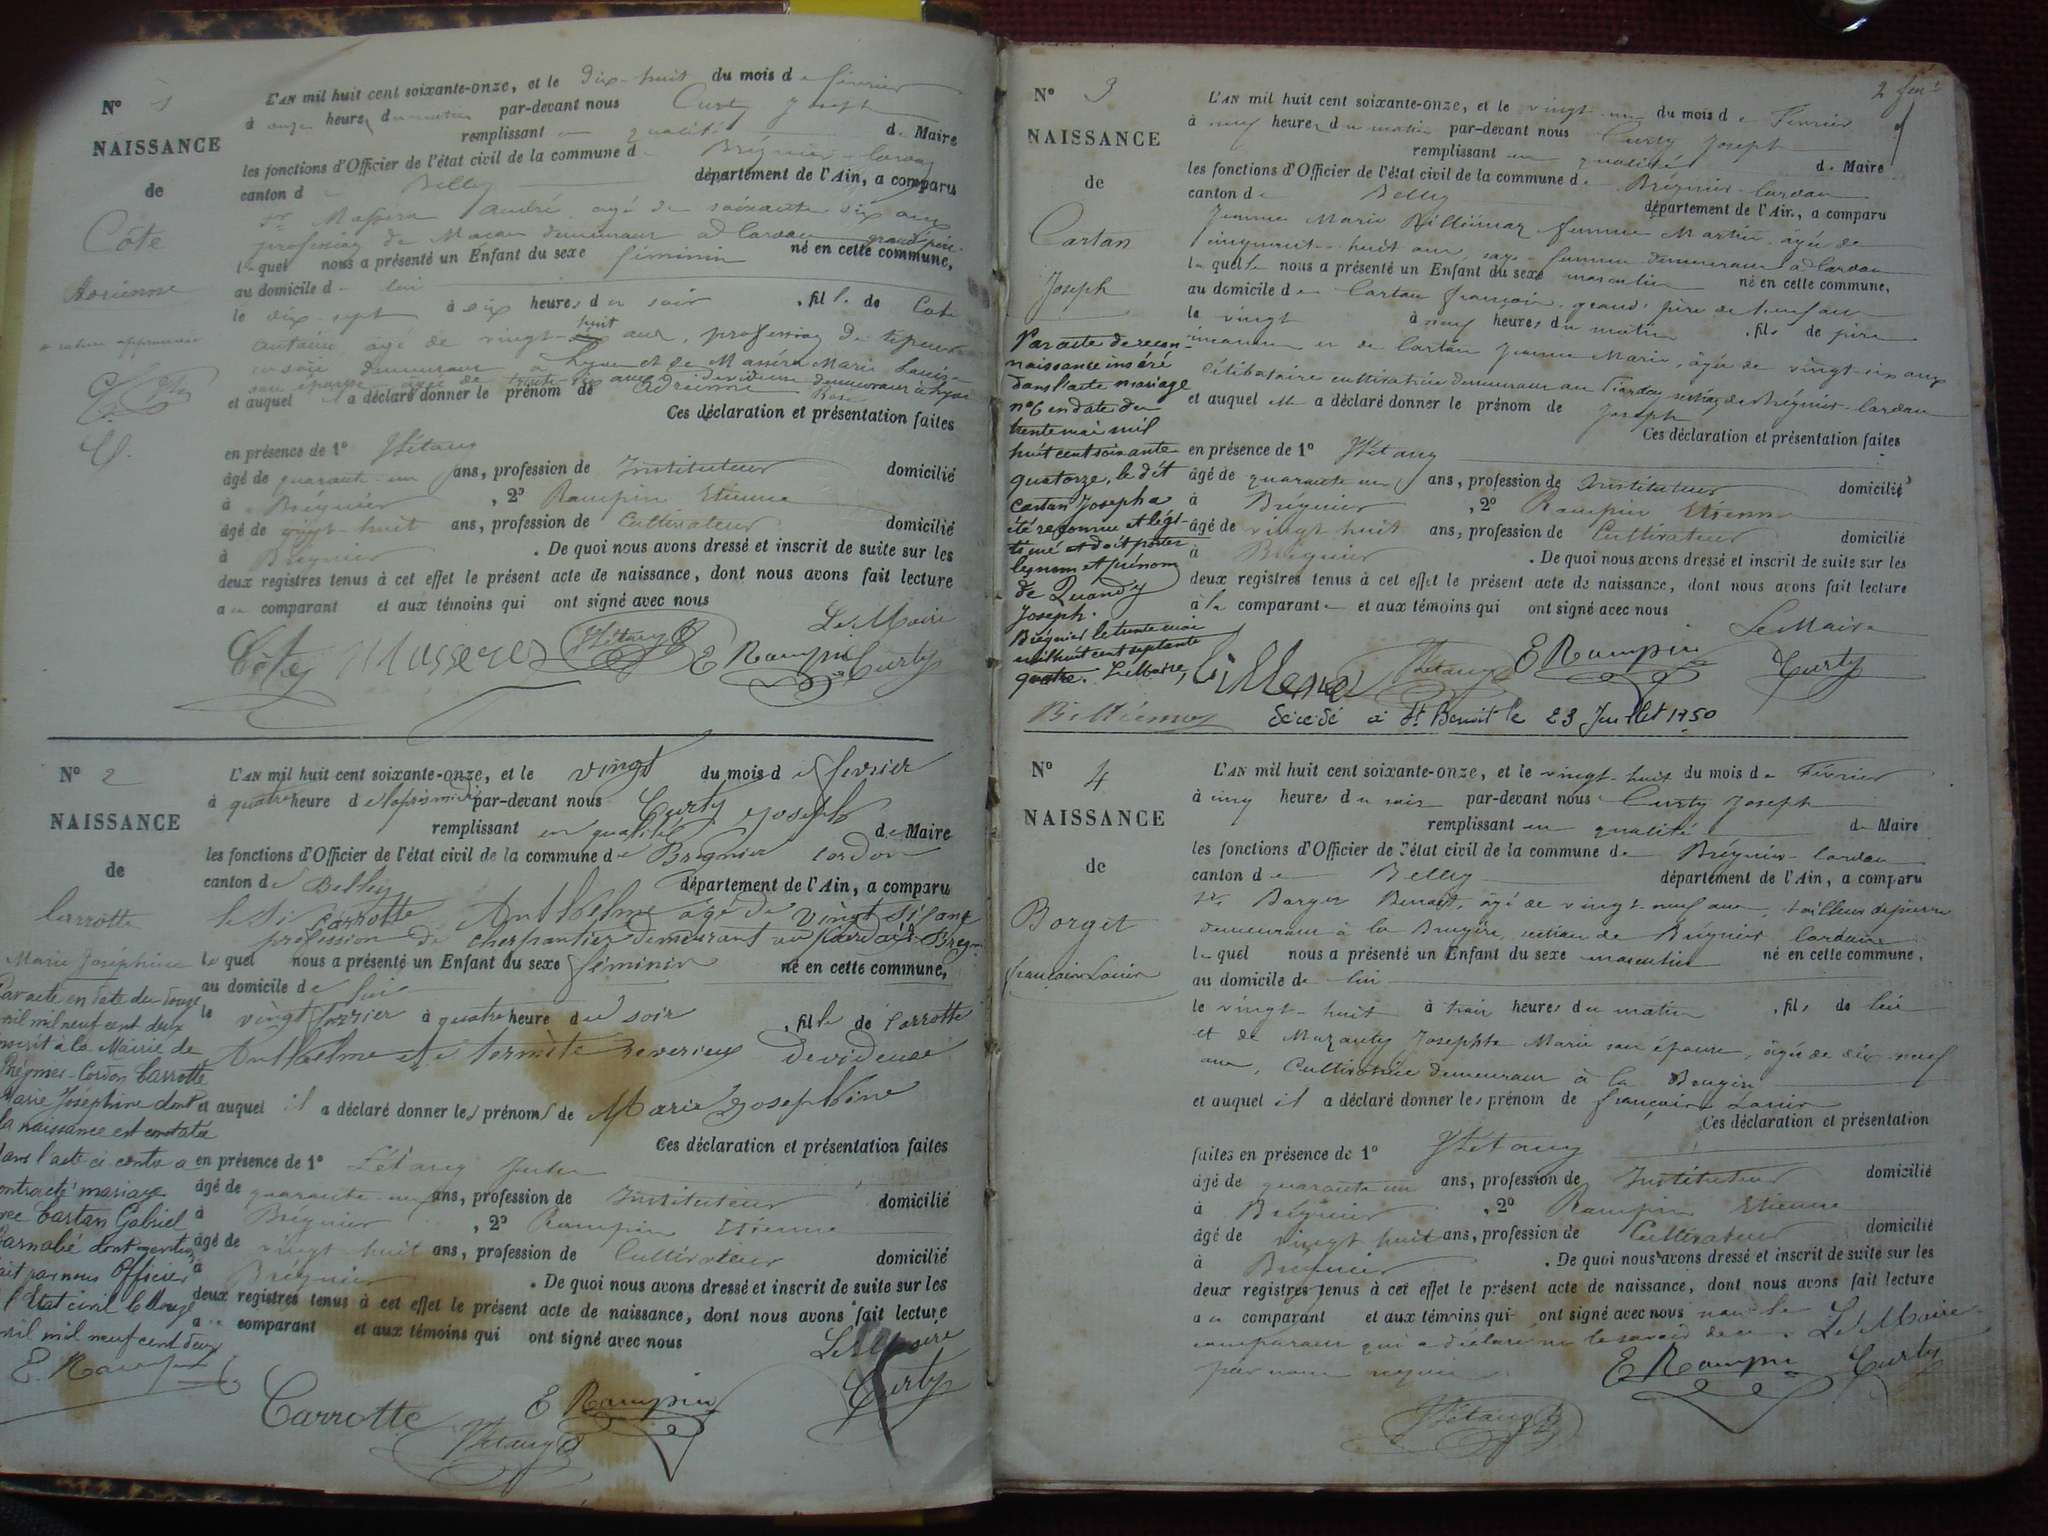 N° 1
NAISSANCE
de
Côte
Adrienne
L'AN mil huit cent soixante-onze, et le dix-huit du mois de février
à onze heures du matin par-devant nous Curty Joseph
remplissant en qualité de Maire
les fonctions d'Officier de l'état civil de la commune de Brégnier-Cordon
canton de Belley département de l'Ain, a comparu
André, âgé de soixante six ans
profession de Maçon demeurant à Cordon grand'père
lequel nous a présenté un Enfant du sexe féminin né en cette commune,
au domicile de lui
le dix-sept à six heures du soir, fille de Côte
Antoine âgé de vingt-huit ans, profession de
en soie demeurant à Lyon et de Marie Louise
son épouse âgée de ans dévideuse demeurant à Lyon
et auquel a déclaré donner le prénom de Adrienne Rose
Ces déclaration et présentation faites
en présence de 1° Létang
âgé de quarante-un ans, profession de Instituteur domicilié
à Brégnier, 2° Rampin Etienne
âgé de vingt-huit ans, profession de Cultivateur domicilié
à Brégnier. De quoi nous avons dressé et inscrit de suite sur les
deux registres tenus à cet effet le présent acte de naissance, dont nous avons fait lecture
au comparant et aux témoins qui ont signé avec nous
Le Maire
Côte Létang E Rampin Curty
N° 2
NAISSANCE
de
Carrotte
Marie Joséphine
Par acte en date du douze
avril mil neuf cent deux
inscrit à la Mairie de
Brégnier-Cordon Carrotte
Marie Joséphine dont
la naissance est constatée
dans l'acte ci contre a
contracté mariage
avec Cartan Gabriel
Barnabé dont mention
fait par nous Officier
de l'Etat civil le douze
avril mil neuf cent deux
E. Rampin
L'AN mil huit cent soixante-onze, et le vingt du mois de fevrier
à quatre heure de laprimidi par-devant nous Curty Joseph
remplissant en qualité de Maire
les fonctions d'Officier de l'état civil de la commune de Brégnier Cordon
canton de Belley département de l'Ain, a comparu
le Sr Carrotte Anthelme âgé de vingt six ans
profession de cherpantier demeurant au
lequel nous a présenté un Enfant du sexe féminin né en cette commune,
au domicile de lui
le vingt fevrier à quatre heure du soir, fille de Carrotte
Anthelme et de Reverieux devideuse
et auquel il a déclaré donner les prénoms de Marie Josephine
Ces déclaration et présentation faites
en présence de 1° Létang Jules
âgé de quarante-un ans, profession de Instituteur domicilié
à Brégnier, 2° Rampin Etienne
âgé de vingt-huit ans, profession de Cultivateur domicilié
à Brégnier. De quoi nous avons dressé et inscrit de suite sur les
deux registres tenus à cet effet le présent acte de naissance, dont nous avons fait lecture
au comparant et aux témoins qui ont signé avec nous
Le Maire
Carrotte Létang E Rampin Curty
N° 3
NAISSANCE
de
Cartan
Joseph
Par acte de recon-
naissance inséré
dans l'acte mariage
n° 6 en date du
trente mai mil
huit cent soixante
quatorze, le dit
Cartan Joseph a
été reconnu et légi-
timé et doit porter
les nom et prénom
de Quandy
Joseph.
Brégnier le trente mai
mil huit cent septante
quatre. Le Maire,
2 feut
L'AN mil huit cent soixante-onze, et le vingt-un du mois de Février
à neuf heures du matin par-devant nous Curty Joseph
remplissant en qualité de Maire
les fonctions d'Officier de l'état civil de la commune de Brégnier-Cordon
canton de Belley département de l'Ain, a comparu
Jeanne Marie Billiémaz femme Martin, âgée de
cinquante-huit ans, sage-femme demeurant à Cordon
laquelle nous a présenté un Enfant du sexe masculin né en cette commune,
au domicile de Cartan françois, grand'père de l'enfant
le vingt à neuf heures du matin, fils de père
inconnu et de Cartan Jeanne Marie, âgée de vingt-six ans
célibataire cultivatrice demeurant au section de Brégnier-Cordon
et auquel elle a déclaré donner le prénom de Joseph
Ces déclaration et présentation faites
en présence de 1° Létang
âgé de quarante un ans, profession de Instituteur domicilié
à Brégnier, 2° Rampin Etienne
âgé de vingt huit ans, profession de Cultivateur domicilié
à Brégnier. De quoi nous avons dressé et inscrit de suite sur les
deux registres tenus à cet effet le présent acte de naissance, dont nous avons fait lecture
à la comparante et aux témoins qui ont signé avec nous
Le Maire
Létang E Rampin Curty
Billiémaz Décédé à St Benoit le 23 Juillet 1950
N° 4
NAISSANCE
de
Borget
françois Louis
L'AN mil huit cent soixante-onze, et le vingt-huit du mois de Février
à cinq heures du soir par-devant nous Curty Joseph
remplissant en qualité de Maire
les fonctions d'Officier de l'état civil de la commune de Brégnier-Cordon
canton de Belley département de l'Ain, a comparu
Sr. Borget Benoit, âgé de vingt-neuf ans, tailleur de pierre
demeurant à la Bruyère, section de Brégnier Cordon
lequel nous a présenté un Enfant du sexe masculin né en cette commune,
au domicile de lui
le vingt-huit à trois heures du matin, fils de lui
et de Josephte Marie son épouse, âgée de dix-neuf
ans, Cultivatrice demeurant à la Bruyère
et auquel il a déclaré donner les prénom de françois Louis
Ces déclaration et présentation
faites en présence de 1° Létang
âgé de quarante un ans, profession de Instituteur domicilié
à Brégnier, 2° Rampin Etienne
âgé de vingt huit ans, profession de Cultivateur domicilié
à Brégnier. De quoi nous avons dressé et inscrit de suite sur les
deux registres tenus à cet effet le présent acte de naissance, dont nous avons fait lecture
au comparant et aux témoins qui ont signé avec nous non le
comparant qui a déclaré ne le savoir de ce Le Maire
par nous requis E Rampin Curty
Létang